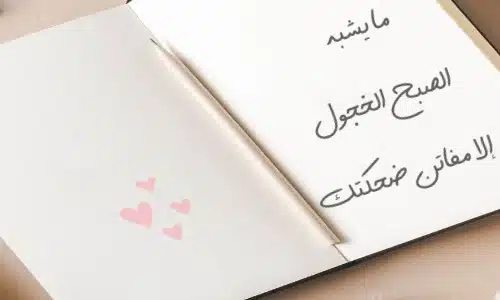 مايشبه
الصبح الخجول
إلا مفاتن ضحكتك